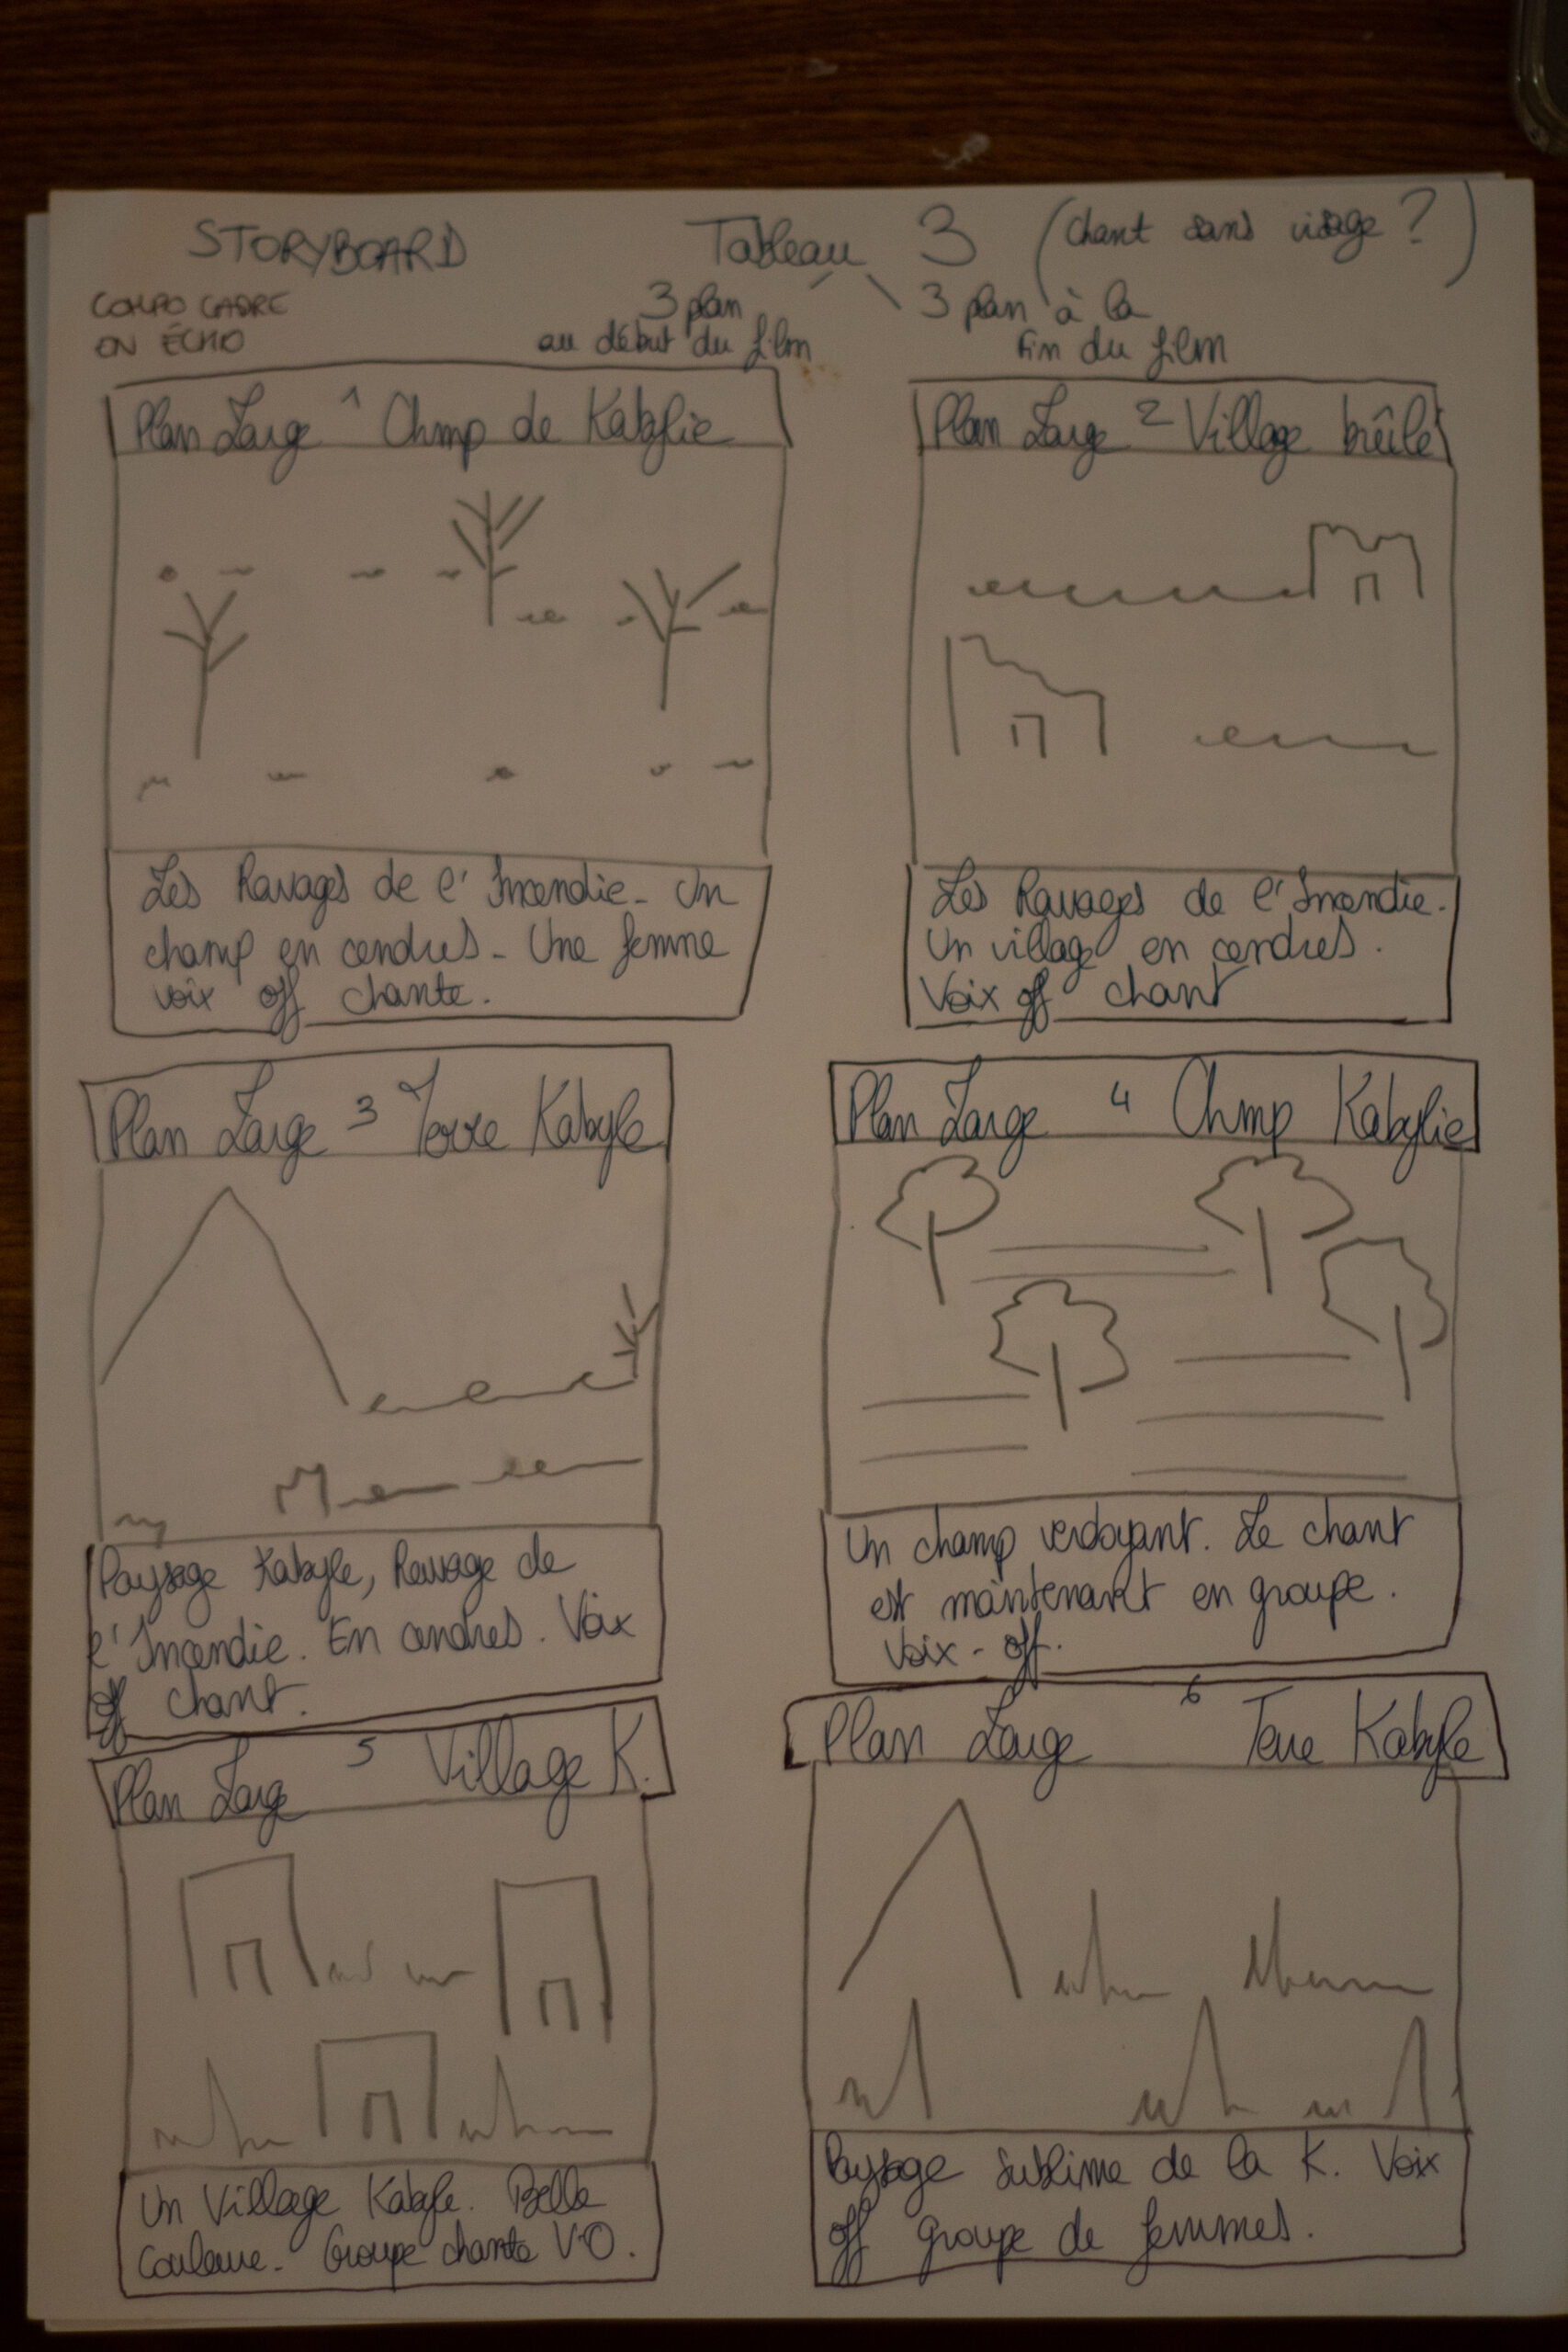 STORYBOARD
Tableau 3 (chant sans visage ?)
COMPO CADRE
EN ÉCHO
3 plan
au début du film
3 plan à la
fin du film
Plan Large 1 Chmp de Kabylie
Les Ravages de l'Incendie - Un
champ en cendres - Une femme
voix off chante.
Plan Large 2 Village brûlé
Les Ravages de l'Incendie.
Un village en cendres.
Voix off chant
Plan Large 3 Terre Kabyle
Paysage Kabyle, Ravage de
l'Incendie. En cendres. Voix
off chant.
Plan Large 4 Chmp Kabylie
Un champ verdoyant. Le chant
est maintenant en groupe.
Voix-off.
Plan Large 5 Village K.
Un Village Kabyle. Belle
Couleur. Groupe chante V.O.
Plan Large 6 Terre Kabyle
Paysage sublime de la K. Voix
off groupe de femmes.